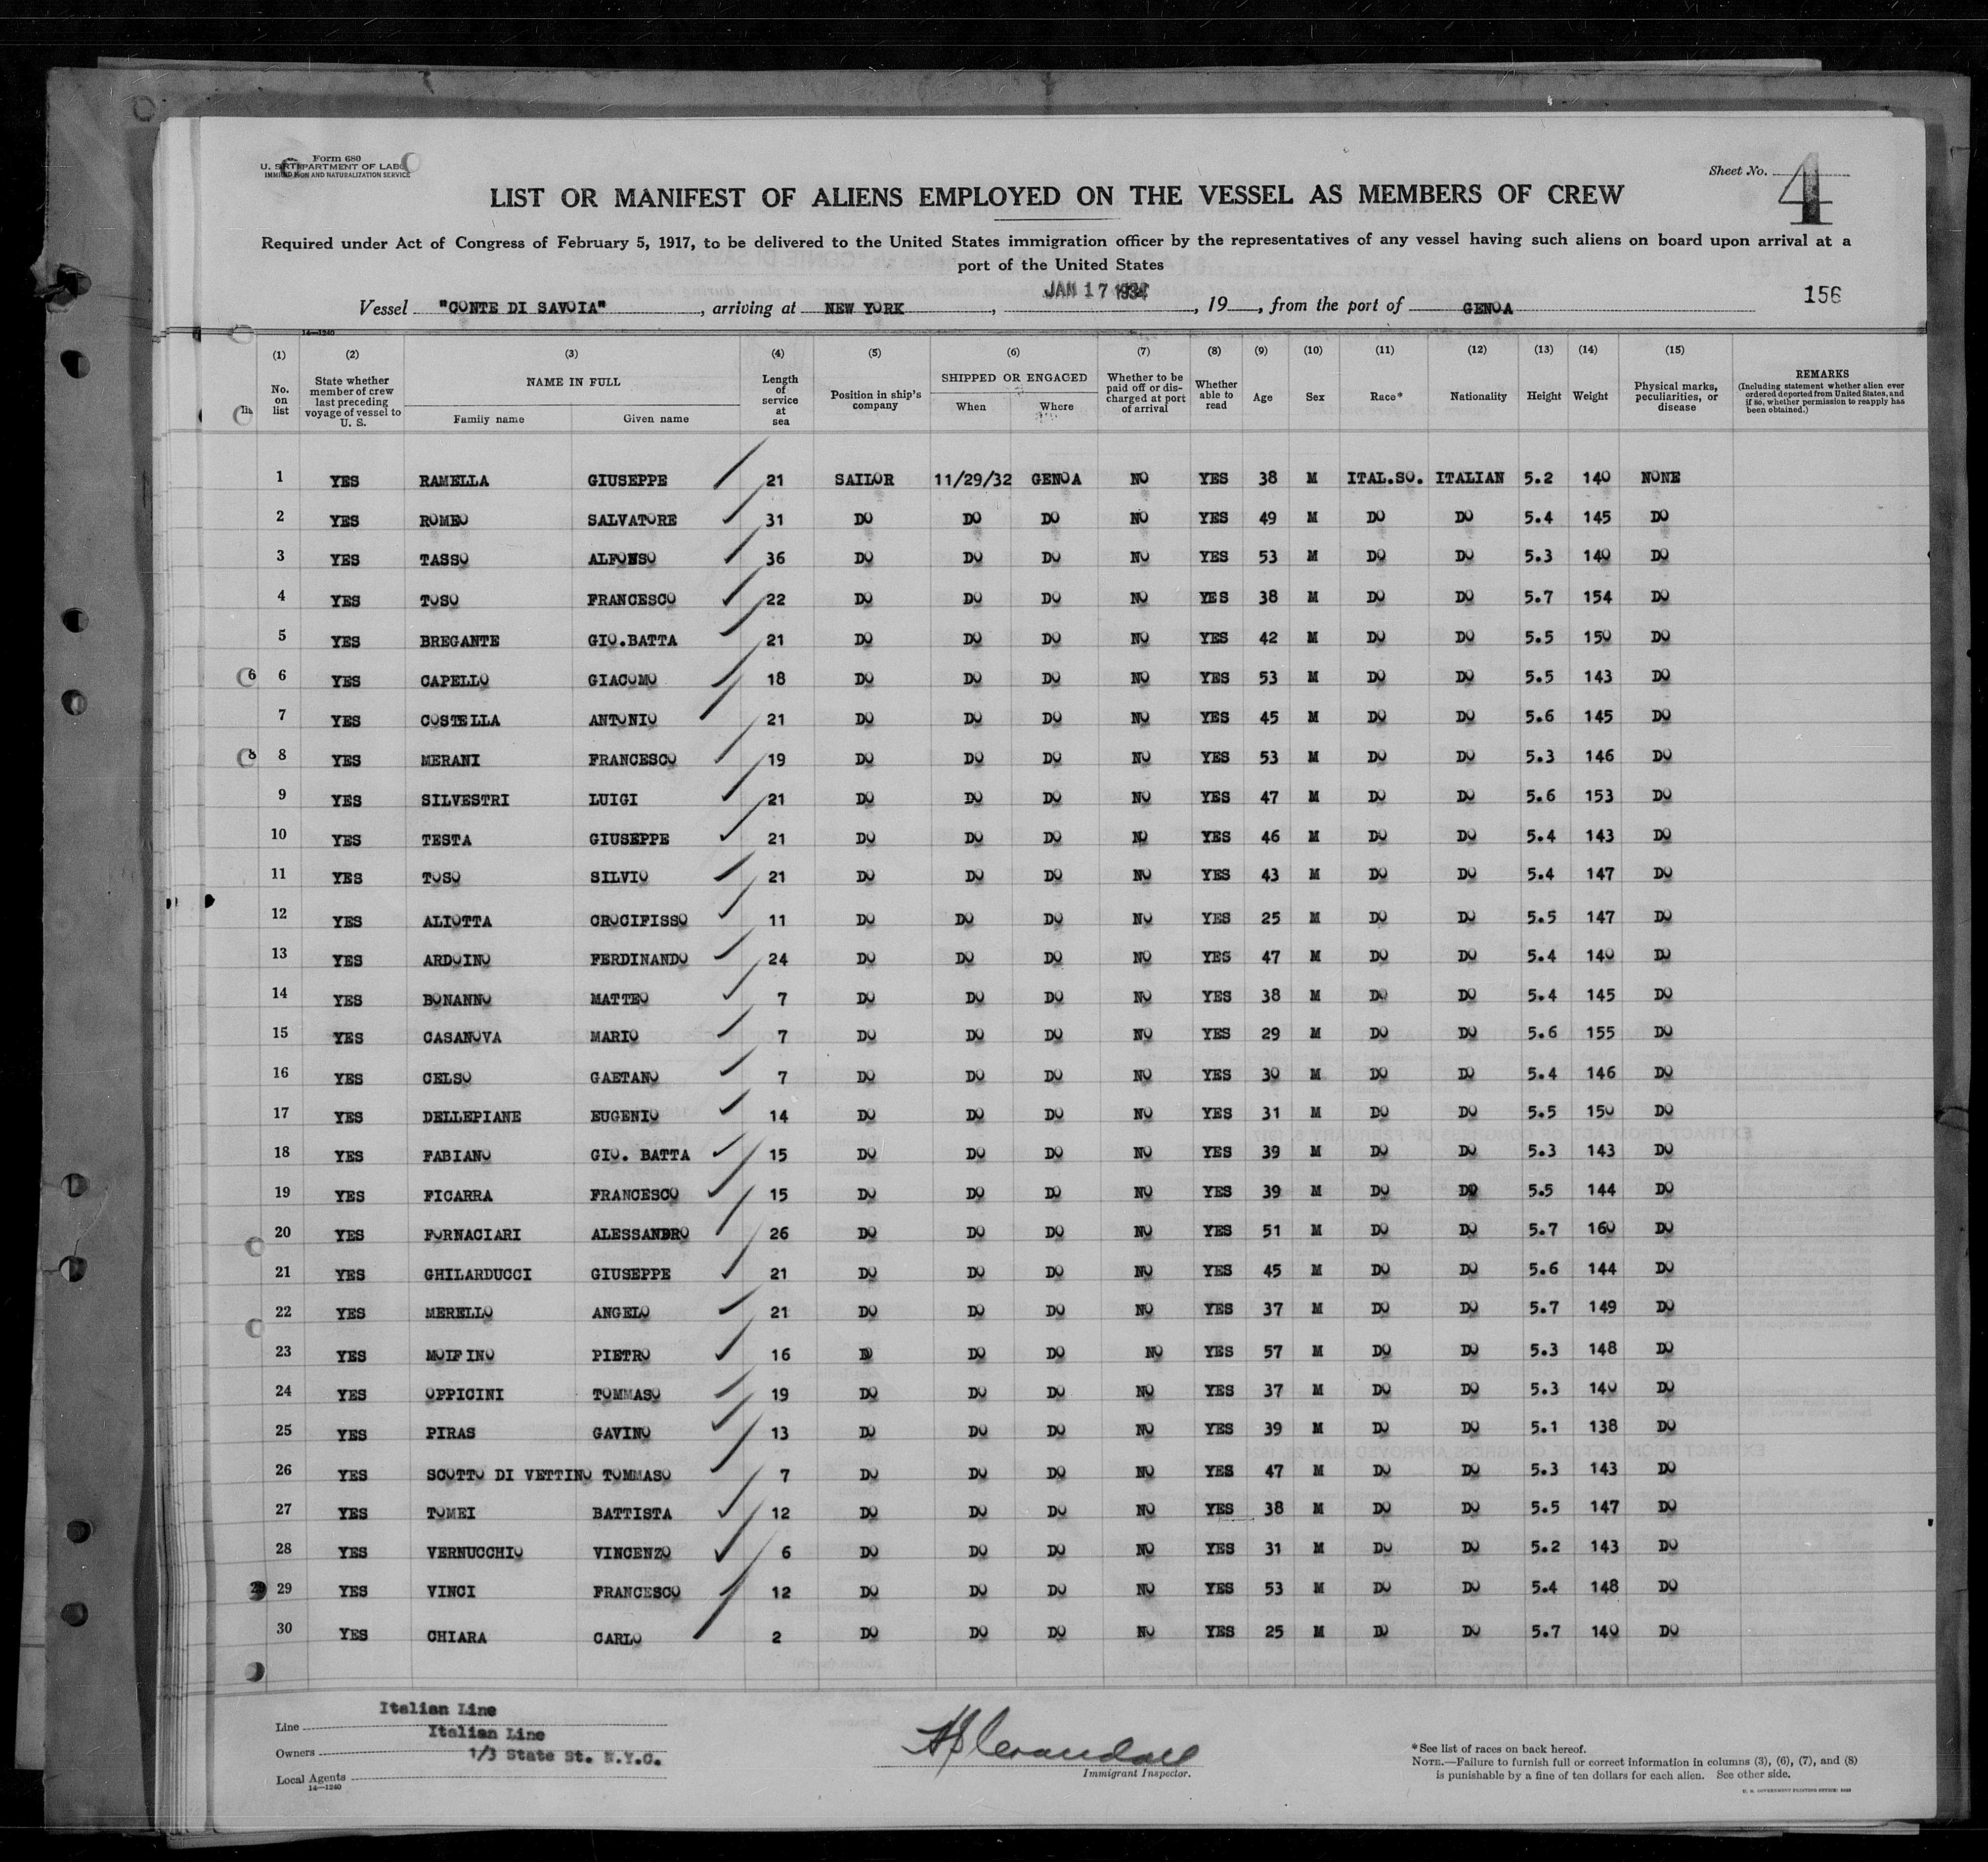 Form 680
U. S. DEPARTMENT OF LABOR
IMMIGRATION AND NATURALIZATION SERVICE
Sheet No. 4
LIST OR MANIFEST OF ALIENS EMPLOYED ON THE VESSEL AS MEMBERS OF CREW
Required under Act of Congress of February 5, 1917, to be delivered to the United States immigration officer by the representatives of any vessel having such aliens on board upon arrival at a
port of the United States
Vessel "CONTE DI SAVOIA", arriving at NEW YORK, JAN 17 1934, 19, from the port of GENOA
156
14—1240
(1) (2) (3) (4) (5) (6) (7) (8) (9) (10) (11) (12) (13) (14) (15)
No. on list | State whether member of crew last preceding voyage of vessel to U. S. | NAME IN FULL Family name Given name | Length of service at sea | Position in ship's company | SHIPPED OR ENGAGED When Where | Whether to be paid off or discharged at port of arrival | Whether able to read | Age | Sex | Race* | Nationality | Height | Weight | Physical marks, peculiarities, or disease | REMARKS (Including statement whether alien ever ordered deported from United States, and if so, whether permission to reapply has been obtained.)
1 YES RAMELLA GIUSEPPE 21 SAILOR 11/29/32 GENOA NO YES 38 M ITAL.SO. ITALIAN 5.2 140 NONE
2 YES ROMEO SALVATORE 31 DO DO DO NO YES 49 M DO DO 5.4 145 DO
3 YES TASSO ALFONSO 36 DO DO DO NO YES 53 M DO DO 5.3 140 DO
4 YES TOSO FRANCESCO 22 DO DO DO NO YES 38 M DO DO 5.7 154 DO
5 YES BREGANTE GIO.BATTA 21 DO DO DO NO YES 42 M DO DO 5.5 150 DO
6 6 YES CAPELLO GIACOMO 18 DO DO DO NO YES 53 M DO DO 5.5 143 DO
7 YES COSTELLA ANTONIO 21 DO DO DO NO YES 45 M DO DO 5.6 145 DO
8 8 YES MERANI FRANCESCO 19 DO DO DO NO YES 53 M DO DO 5.3 146 DO
9 YES SILVESTRI LUIGI 21 DO DO DO NO YES 47 M DO DO 5.6 153 DO
10 YES TESTA GIUSEPPE 21 DO DO DO NO YES 46 M DO DO 5.4 143 DO
11 YES TOSO SILVIO 21 DO DO DO NO YES 43 M DO DO 5.4 147 DO
12 YES ALIOTTA CROCIFISSO 11 DO DO DO NO YES 25 M DO DO 5.5 147 DO
13 YES ARDUINO FERDINANDO 24 DO DO DO NO YES 47 M DO DO 5.4 140 DO
14 YES BONANNO MATTEO 7 DO DO DO NO YES 38 M DO DO 5.4 145 DO
15 YES CASANOVA MARIO 7 DO DO DO NO YES 29 M DO DO 5.6 155 DO
16 YES CELSO GAETANO 7 DO DO DO NO YES 30 M DO DO 5.4 146 DO
17 YES DELLEPIANE EUGENIO 14 DO DO DO NO YES 31 M DO DO 5.5 150 DO
18 YES FABIANO GIO. BATTA 15 DO DO DO NO YES 39 M DO DO 5.3 143 DO
19 YES FICARRA FRANCESCO 15 DO DO DO NO YES 39 M DO DO 5.5 144 DO
20 YES FORNACIARI ALESSANDRO 26 DO DO DO NO YES 51 M DO DO 5.7 160 DO
21 YES GHILARDUCCI GIUSEPPE 21 DO DO DO NO YES 45 M DO DO 5.6 144 DO
22 YES MERELLO ANGELO 21 DO DO DO NO YES 37 M DO DO 5.7 149 DO
23 YES MOIFINO PIETRO 16 DO DO DO NO YES 57 M DO DO 5.3 148 DO
24 YES OPPICINI TOMMASO 19 DO DO DO NO YES 37 M DO DO 5.3 140 DO
25 YES PIRAS GAVINO 13 DO DO DO NO YES 39 M DO DO 5.1 138 DO
26 YES SCOTTO DI VETTINO TOMMASO 7 DO DO DO NO YES 47 M DO DO 5.3 143 DO
27 YES TOMEI BATTISTA 12 DO DO DO NO YES 38 M DO DO 5.5 147 DO
28 YES VERNUCCHIO VINCENZO 6 DO DO DO NO YES 31 M DO DO 5.2 143 DO
29 29 YES VINCI FRANCESCO 12 DO DO DO NO YES 53 M DO DO 5.4 148 DO
30 YES CHIARA CARLO 2 DO DO DO NO YES 25 M DO DO 5.7 140 DO
Line Italian Line
Owners Italian Line
1/3 State St. N.Y.C.
Local Agents
14—1240
Immigrant Inspector.
*See list of races on back hereof.
NOTE.—Failure to furnish full or correct information in columns (3), (6), (7), and (8)
is punishable by a fine of ten dollars for each alien. See other side.